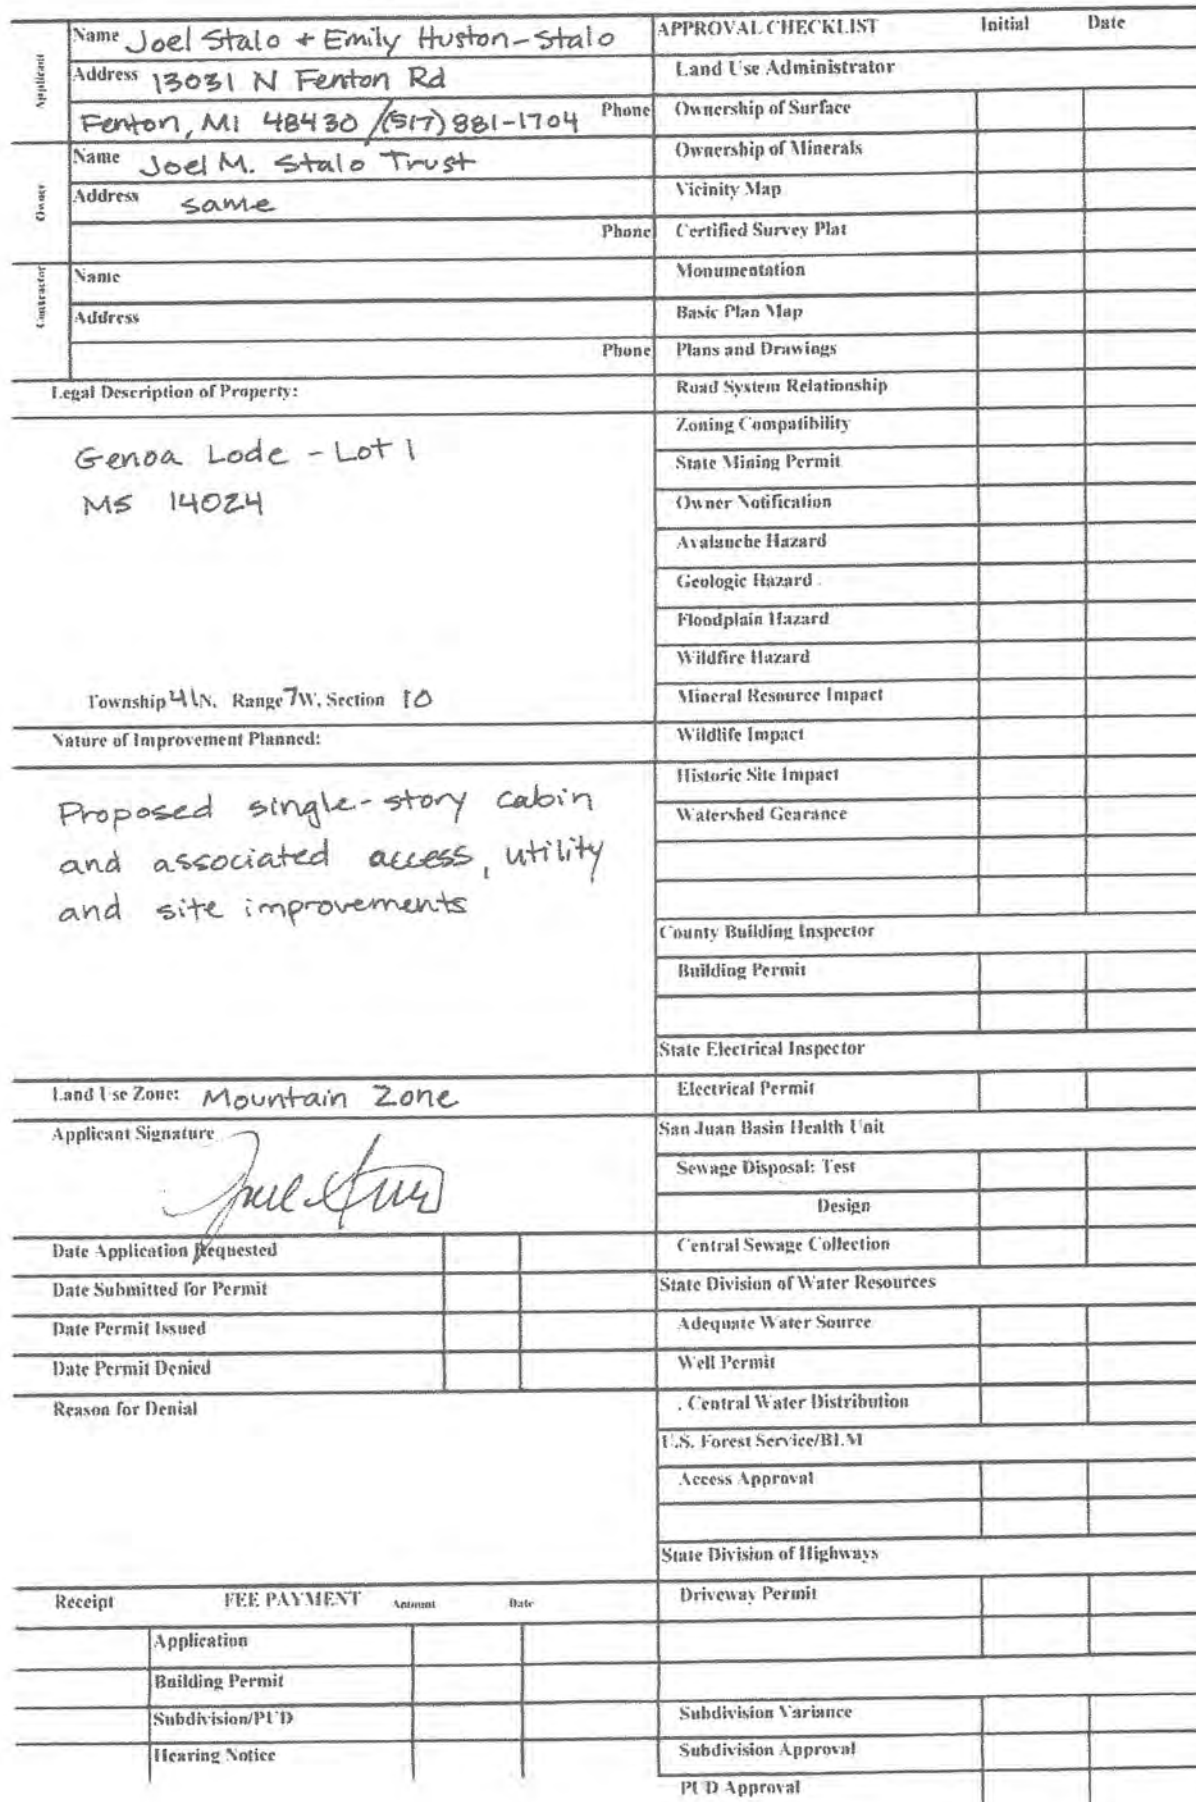 Applicant
Name Joel Stalo + Emily Huston-Stalo
Address 13031 N Fenton Rd
Fenton, MI 48430 / (517) 881-1704 Phone
Owner
Name Joel M. Stalo Trust
Address same
Phone
Contractor
Name
Address
Phone
Legal Description of Property:
Genoa Lode - Lot 1
MS 14024
Township 41N, Range 7W, Section 10
Nature of Improvement Planned:
Proposed single-story cabin
and associated access, utility
and site improvements
Land Use Zone: Mountain Zone
Applicant Signature
Date Application Requested
Date Submitted for Permit
Date Permit Issued
Date Permit Denied
Reason for Denial
Receipt FEE PAYMENT Amount Date
Application
Building Permit
Subdivision/PUD
Hearing Notice
APPROVAL CHECKLIST Initial Date
Land Use Administrator
Ownership of Surface
Ownership of Minerals
Vicinity Map
Certified Survey Plat
Monumentation
Basic Plan Map
Plans and Drawings
Road System Relationship
Zoning Compatibility
State Mining Permit
Owner Notification
Avalanche Hazard
Geologic Hazard
Floodplain Hazard
Wildfire Hazard
Mineral Resource Impact
Wildlife Impact
Historic Site Impact
Watershed Gearance
County Building Inspector
Building Permit
State Electrical Inspector
Electrical Permit
San Juan Basin Health Unit
Sewage Disposal: Test
Design
Central Sewage Collection
State Division of Water Resources
Adequate Water Source
Well Permit
. Central Water Distribution
U.S. Forest Service/BLM
Access Approval
State Division of Highways
Driveway Permit
Subdivision Variance
Subdivision Approval
PUD Approval